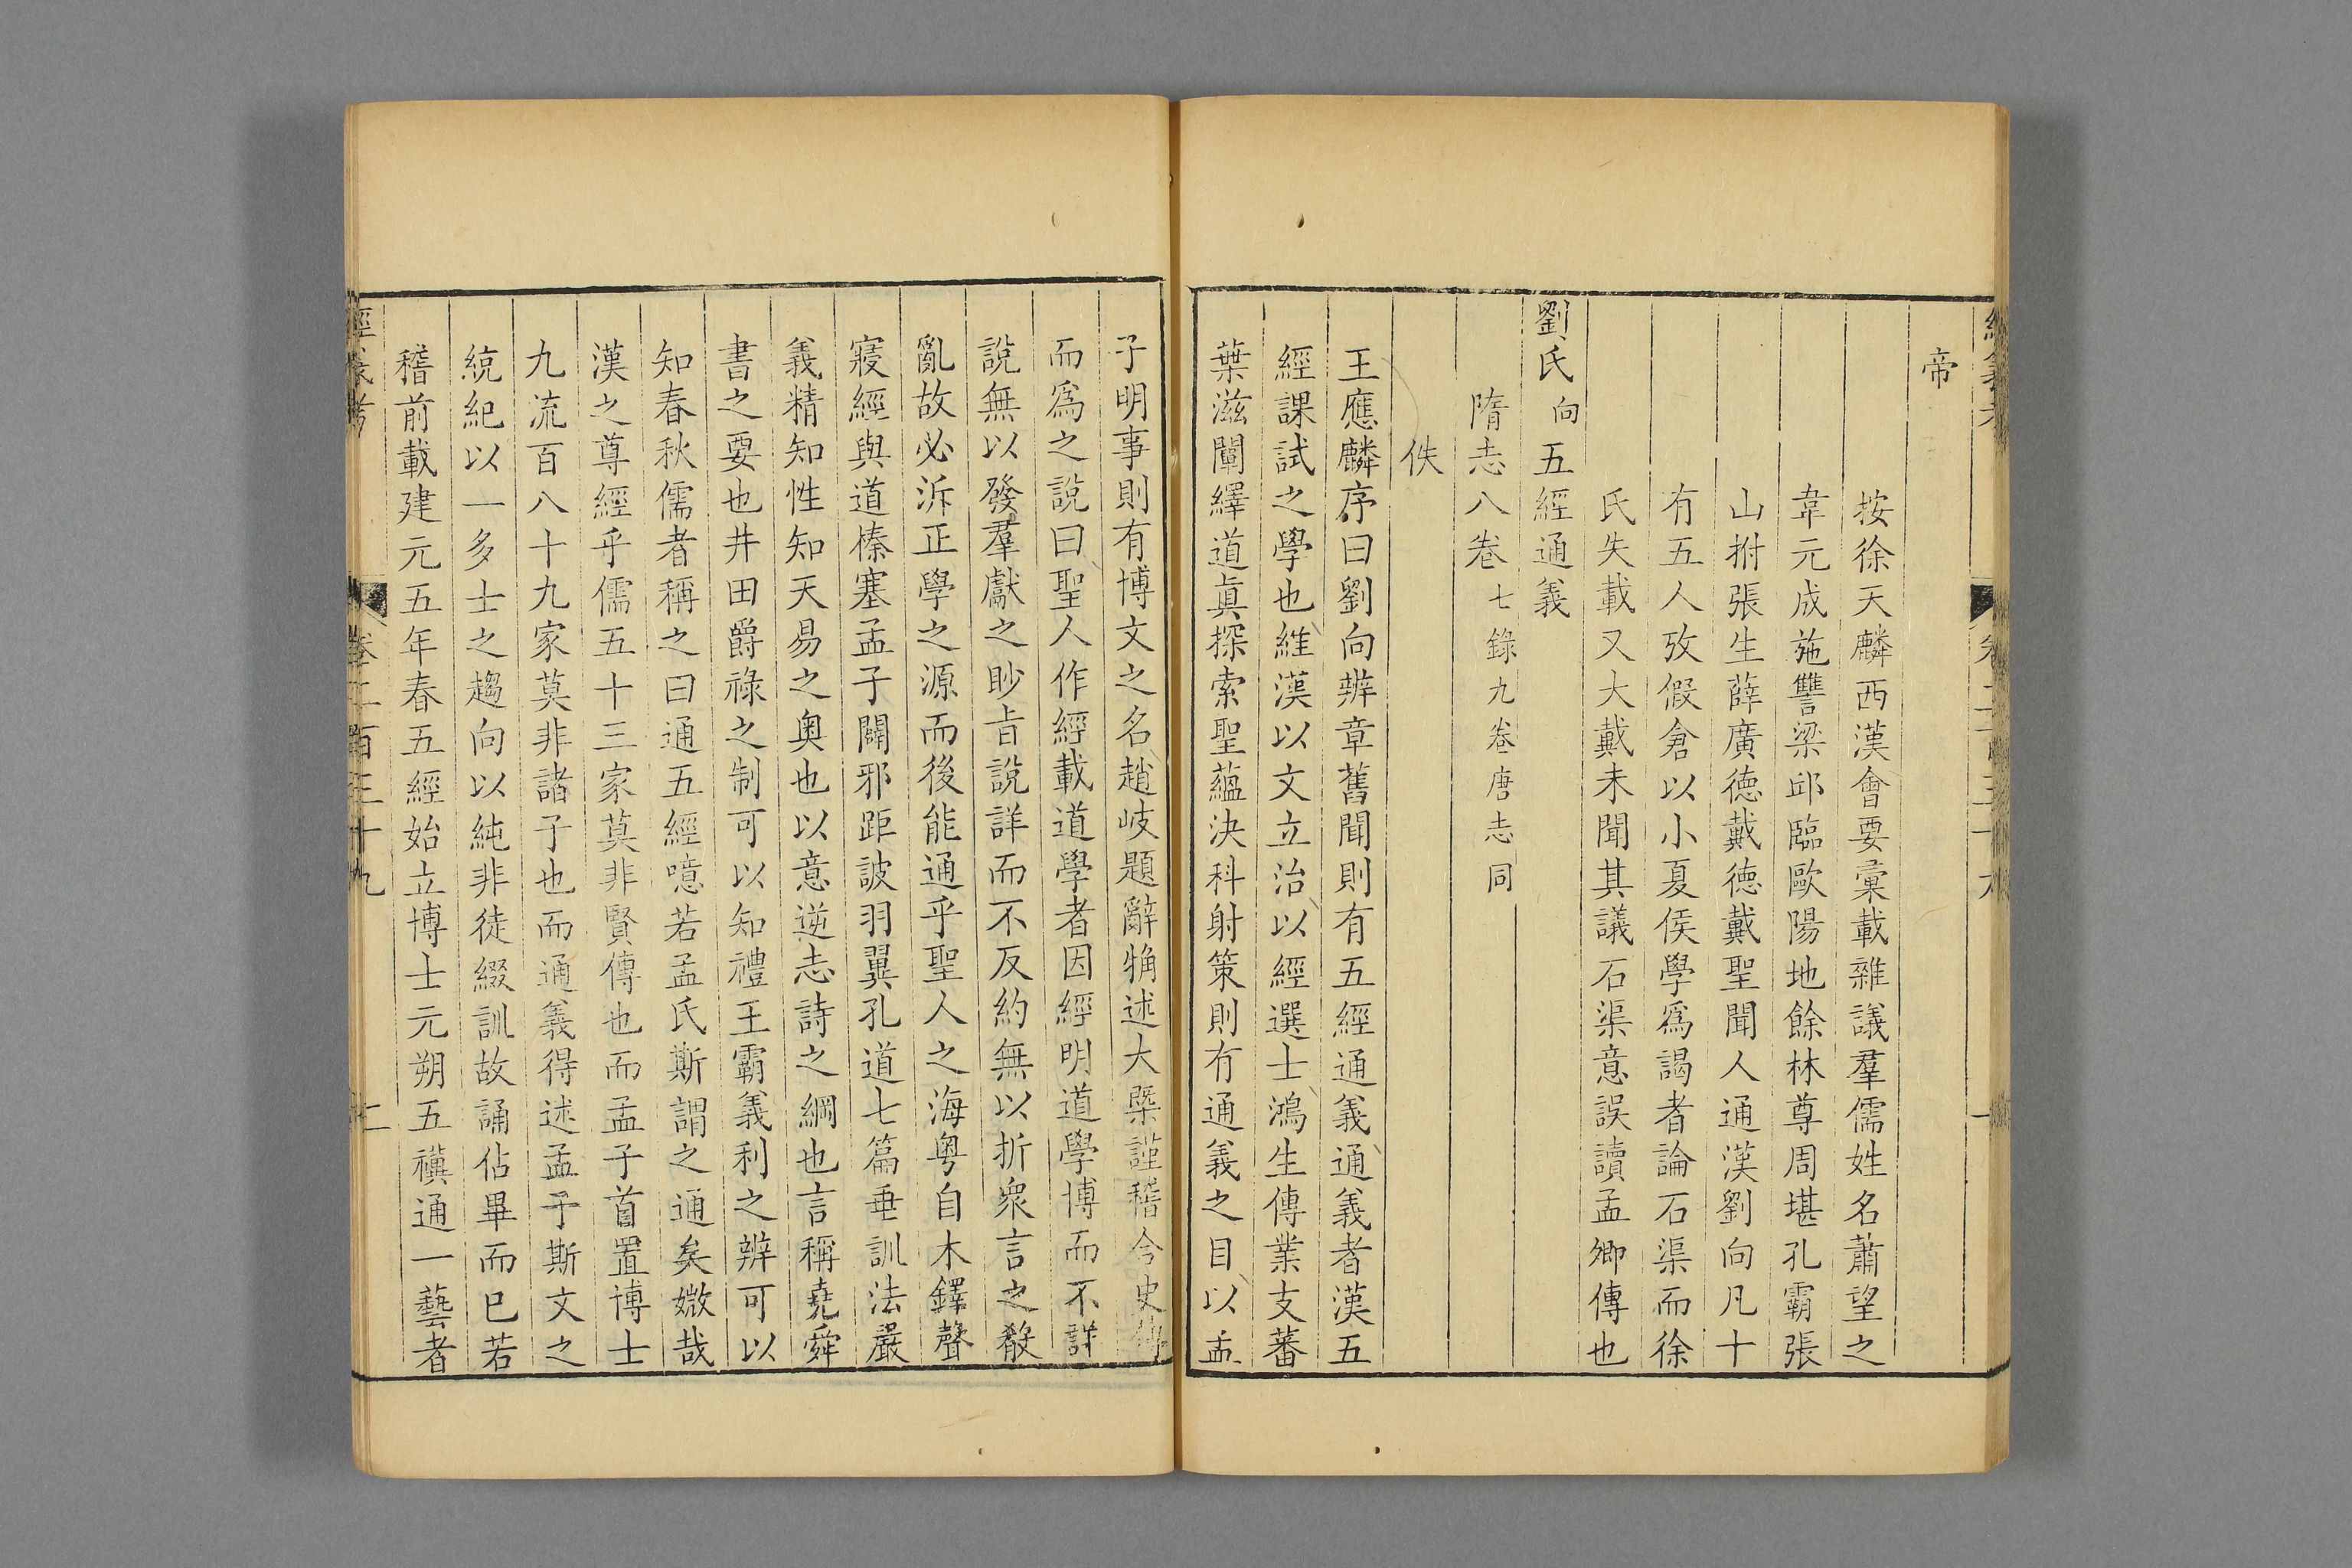 帝
按徐天麟西漢會要彙載雜議羣儒姓名蕭望之
韋元成施讐梁邱臨歐陽地餘林尊周堪孔霸張
山拊張生薛廣德戴德戴聖聞人通漢劉向凡十
有五人攷假倉以小夏侯學爲謁者論石渠而徐
氏失載又大戴未聞其議石渠意誤讀孟卿傳也
劉氏向五經通義
隋志八卷七錄九卷唐志同
佚
王應麟序曰劉向辨章舊聞則有五經通義通義者漢五
經課試之學也維漢以文立治以經選士鴻生傳業支蕃
葉滋闡繹道眞探索聖蘊決科射策則有通義之目以孟
子明事則有博文之名趙岐題辭觕述大槩謹稽今史
而爲之說曰聖人作經載道學者因經明道學博而不詳
說無以發羣獻之眇㫖說詳而不反約無以折衆言之殽
亂故必泝正學之源而後能通乎聖人之海粤自木鐸聲
寢經與道榛塞孟子闢邪距詖羽翼孔道七篇垂訓法嚴
義精知性知天易之奧也以意逆志詩之綱也言稱堯舜
書之要也井田爵祿之制可以知禮王霸義利之辨可以
知春秋儒者稱之曰通五經噫若孟氏斯謂之通矣媺哉
漢之尊經乎儒五十三家莫非賢傳也而孟子首置博士
九流百八十九家莫非諸子也而通義得述孟子斯文之
統紀以一多士之趨向以純非徒綴訓故誦佔畢而已若
稽前載建元五年春五經始立博士元朔五禩通一藝者
經義考
卷二百三十九
二